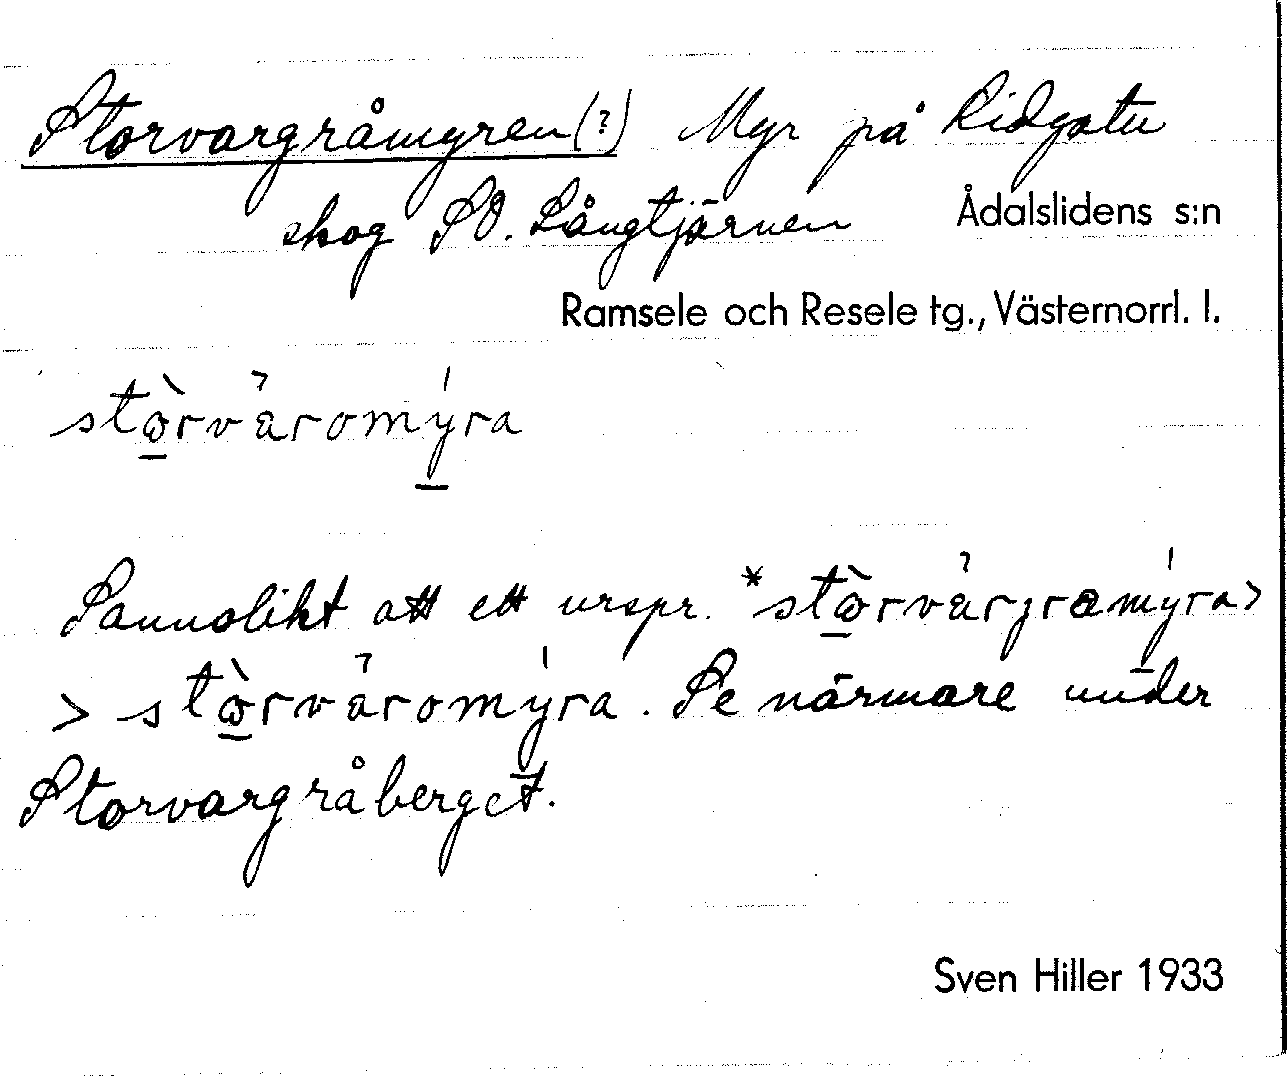 Storvargråmyren(?) Myr på Lidgatu
skog SO. Långtjärnen Ådalslidens s:n
Ramsele och Resele tg., Västernorrl. l.
stòrvàromýra
Sannolikt att ett urspr. *stòrvàrgramýra>
> stòrvàromýra. Se närmare under
Storvargråberget.
Sven Hiller 1933